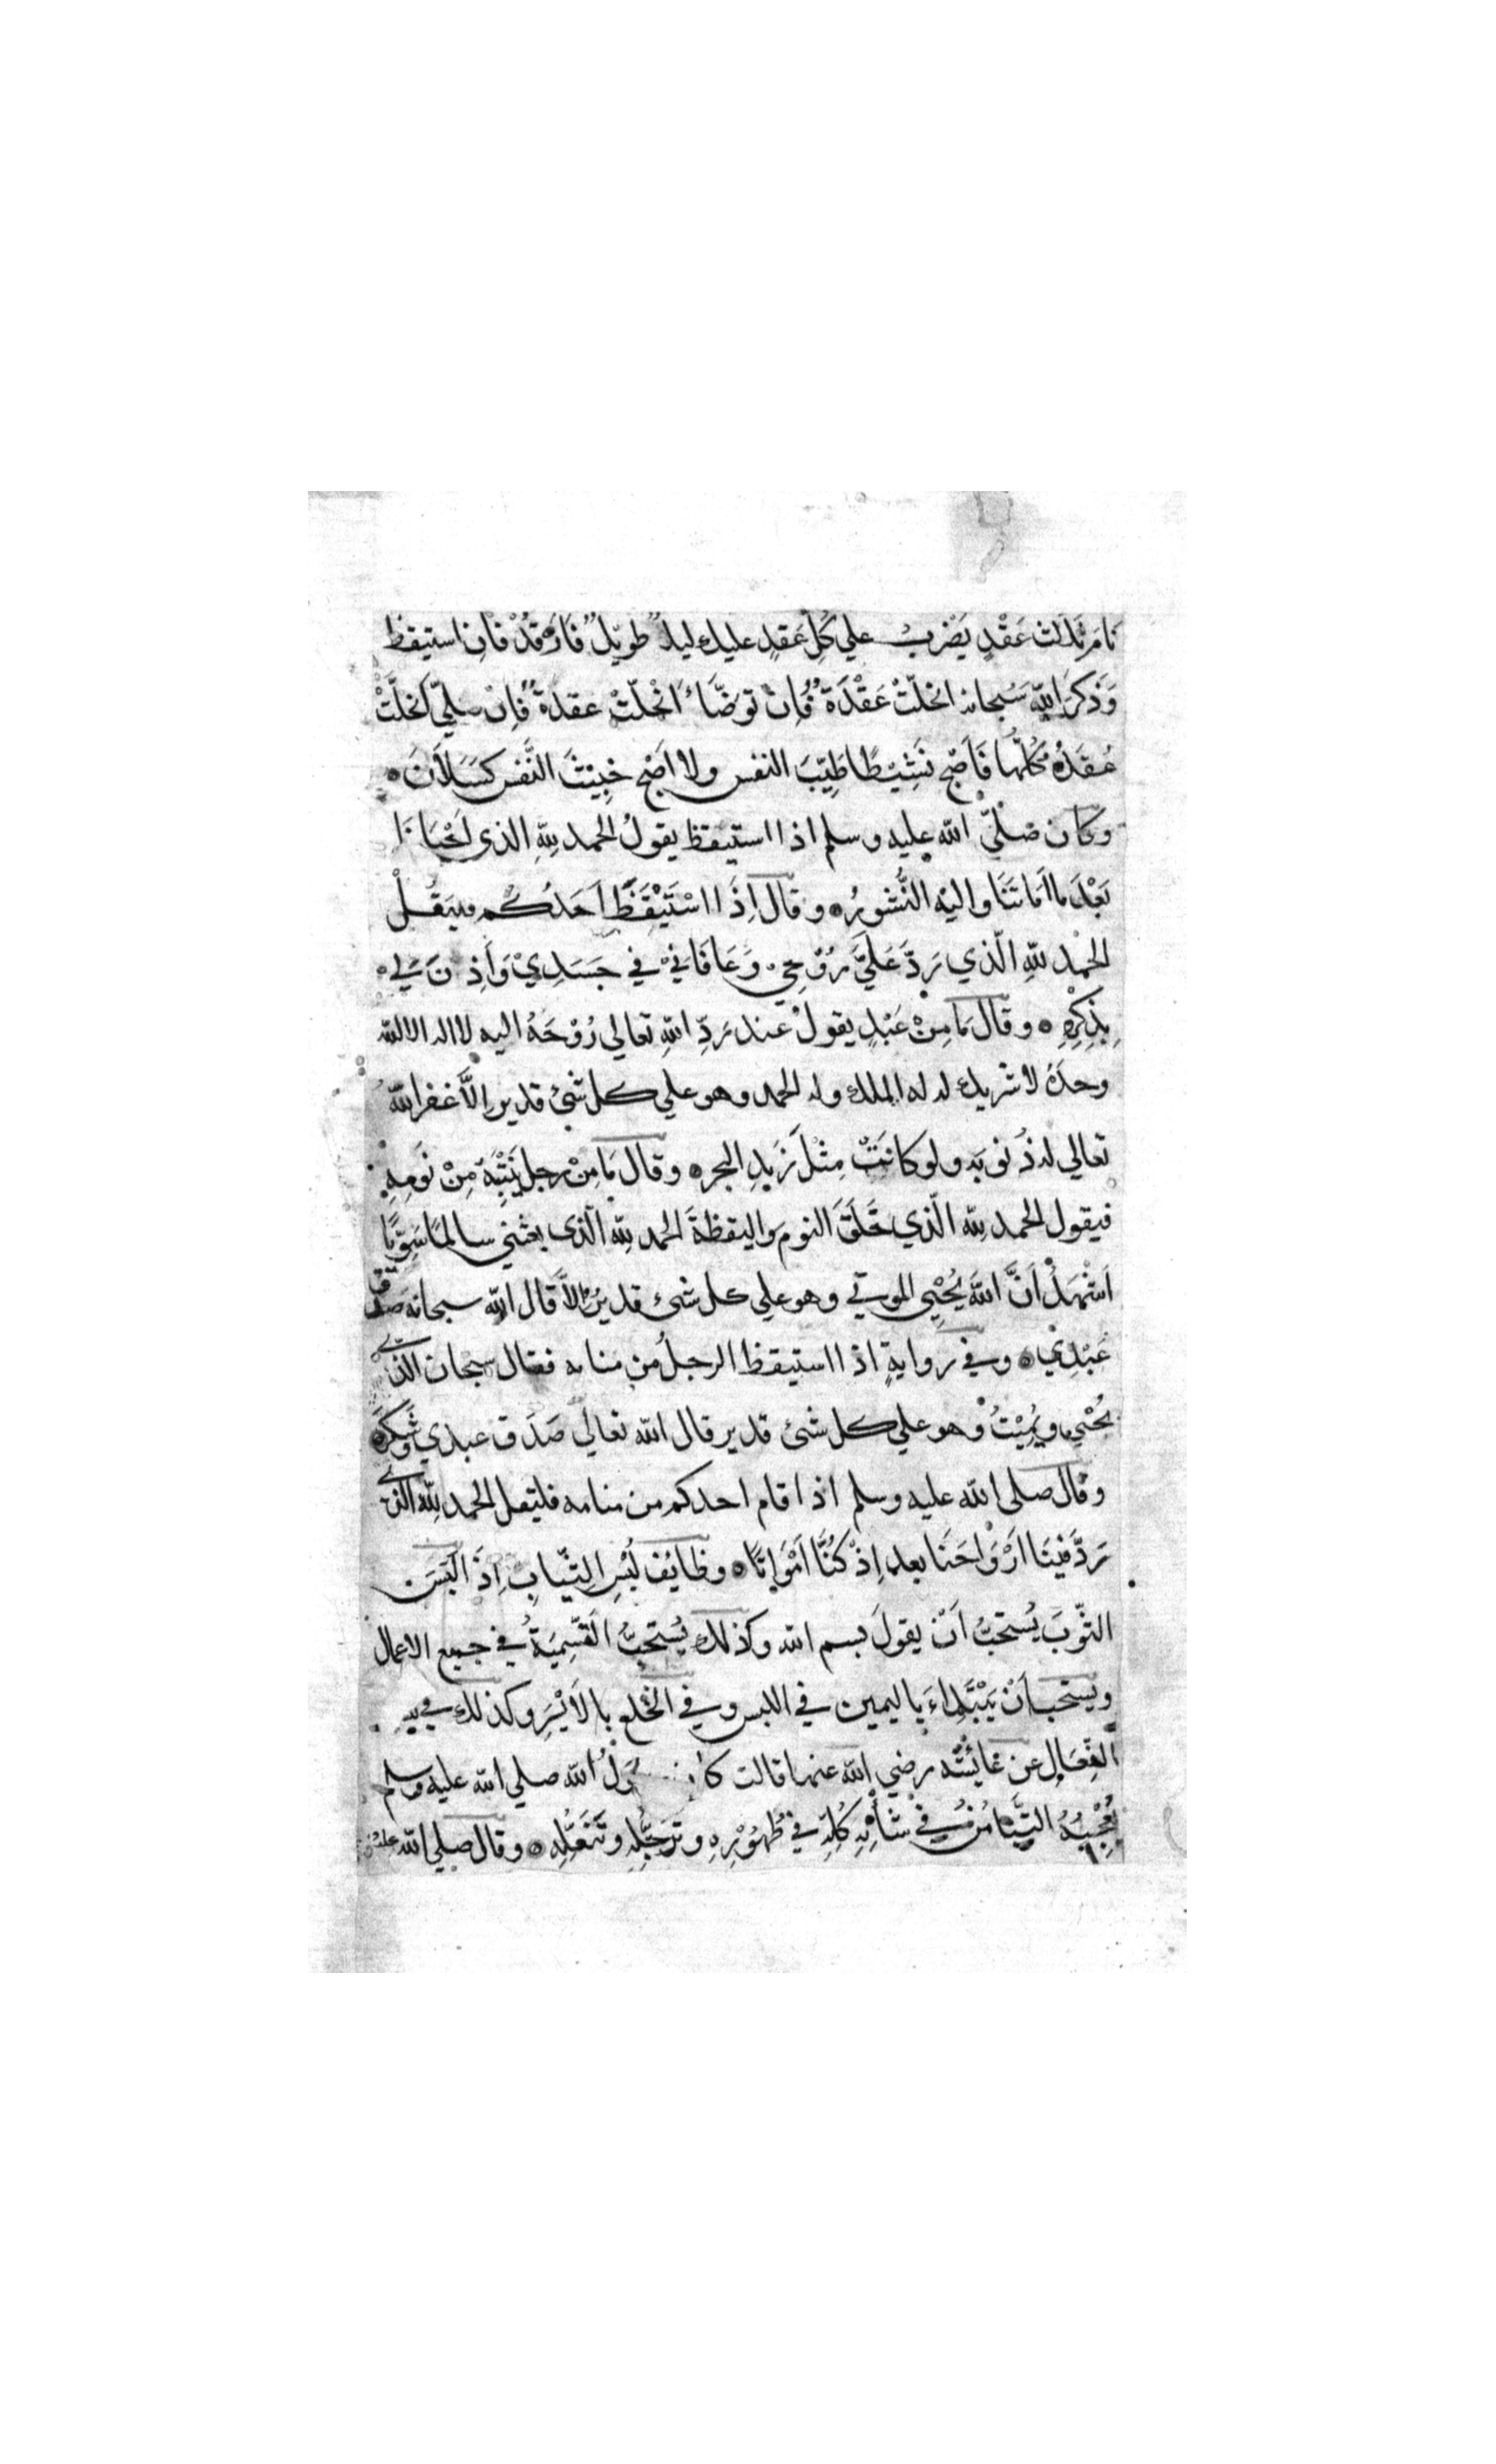 نَامَ ثَلَاثَ عَقْدٍ يَضْرِبُ علي كُلِّ عَقْدٍ عليك ليلٌ طويلٌ فَارْقُدْ فَإن استيقظ
وَذَكرَ اللهَ سُبحانه انحَلّتْ عَقْدَةٌ فَإنْ توضّأ انْحلّتْ عقدةٌ فَإنْ صلّي انحَلَّتْ
عُقَدُهُ كُلُّها فَاَصْبح نَشِيْطًا طَيِّبَ النفس ولا اَصْبح خَبِيثَ النَّفس كَسْلَانَ ه
وكان صَلّيَ الله عليه وسلم اذا استيقظ يقولُ الحمد للهِ الذى اَحْيَانَا
بَعْدَ ما اَمَاتَنَا واليه النُّشورُ ه و قال اِذَا اسْتَيْقَظَ اَحَدُكُم فليَقُلْ
الحَمْد للهِ الّذي رَدَّ عَلَيَّ رُوْحِي وَعَافَانِيْ في جَسَدِيْ وَاَذِنَ لِي
بِذِكْرِهِ ه و قال مَا مِنْ عَبْدٍ يقولُ عند رَدِّ اللهِ تعالي رُوْحَهُ اليه لا اله الا الله
وحدَهُ لا شريك له له الملك وله الحمد وهو علي كل شئ قدير اِلَّا غفر اللهُ
تعالي له ذُنوبَه ولو كانَتْ مِثْلَ زَبَدِ البحر ه وقال مَا مِنْ رجل يَنْتَبِهُ مِنْ نَومِهِ
فيقول الحمد لله الّذي خَلَقَ النومَ واليقظةَ الحمد لله الّذى بعثني سالمًا سَوِيًّا
اَشْهَدُ اَنَّ اللهَ يُحْيِي الموتي وهو علي كل شئ قديرٌ اِلاَّ قال الله سبحانه صَدَقَ
عَبْدِيْ ه وفي روايةٍ اذا استيقظ الرجلُ من منامه فقال سبحان الذي
يُحْيِي ويُمِيْتُ وهو علي كل شئ قدير قال الله تعالي صَدَق عبدي وشَكَرَ ه
وقال صلى الله عليه وسلم اذا قام احدكم من منامه فليقل الحمد لله الذي
رَدَّ فينَا اَرْوَاحَنَا بعد اِذْ كُنَّا اَمْوَاتًا ه وظايُف لُبْسِ الثّيابِ اِذَا لَبَسَ
الثّوبَ يُستحبُّ اَنْ يقولَ بسم الله وكذلك يُستحبُّ التَّسْمِيَةُ في جميع الاعمال
ويستحبّ اَنْ يَبْتَدِاءَ باليمين في اللبس وفي الخَلع بالاَيْسَرِ وكذلك فيه
النِّعَالِ عن عائشة رضي الله عنها قالت كان رسولُ الله صلي الله عليه وسلم
يُعْجِبُهُ التَّيَامُنُ في شَأْنِهِ كُلِّهِ في طُهُوْرِهِ وتَرَجُّلِهِ وتَنَعُّلِهِ ه وقال صلي الله عليه